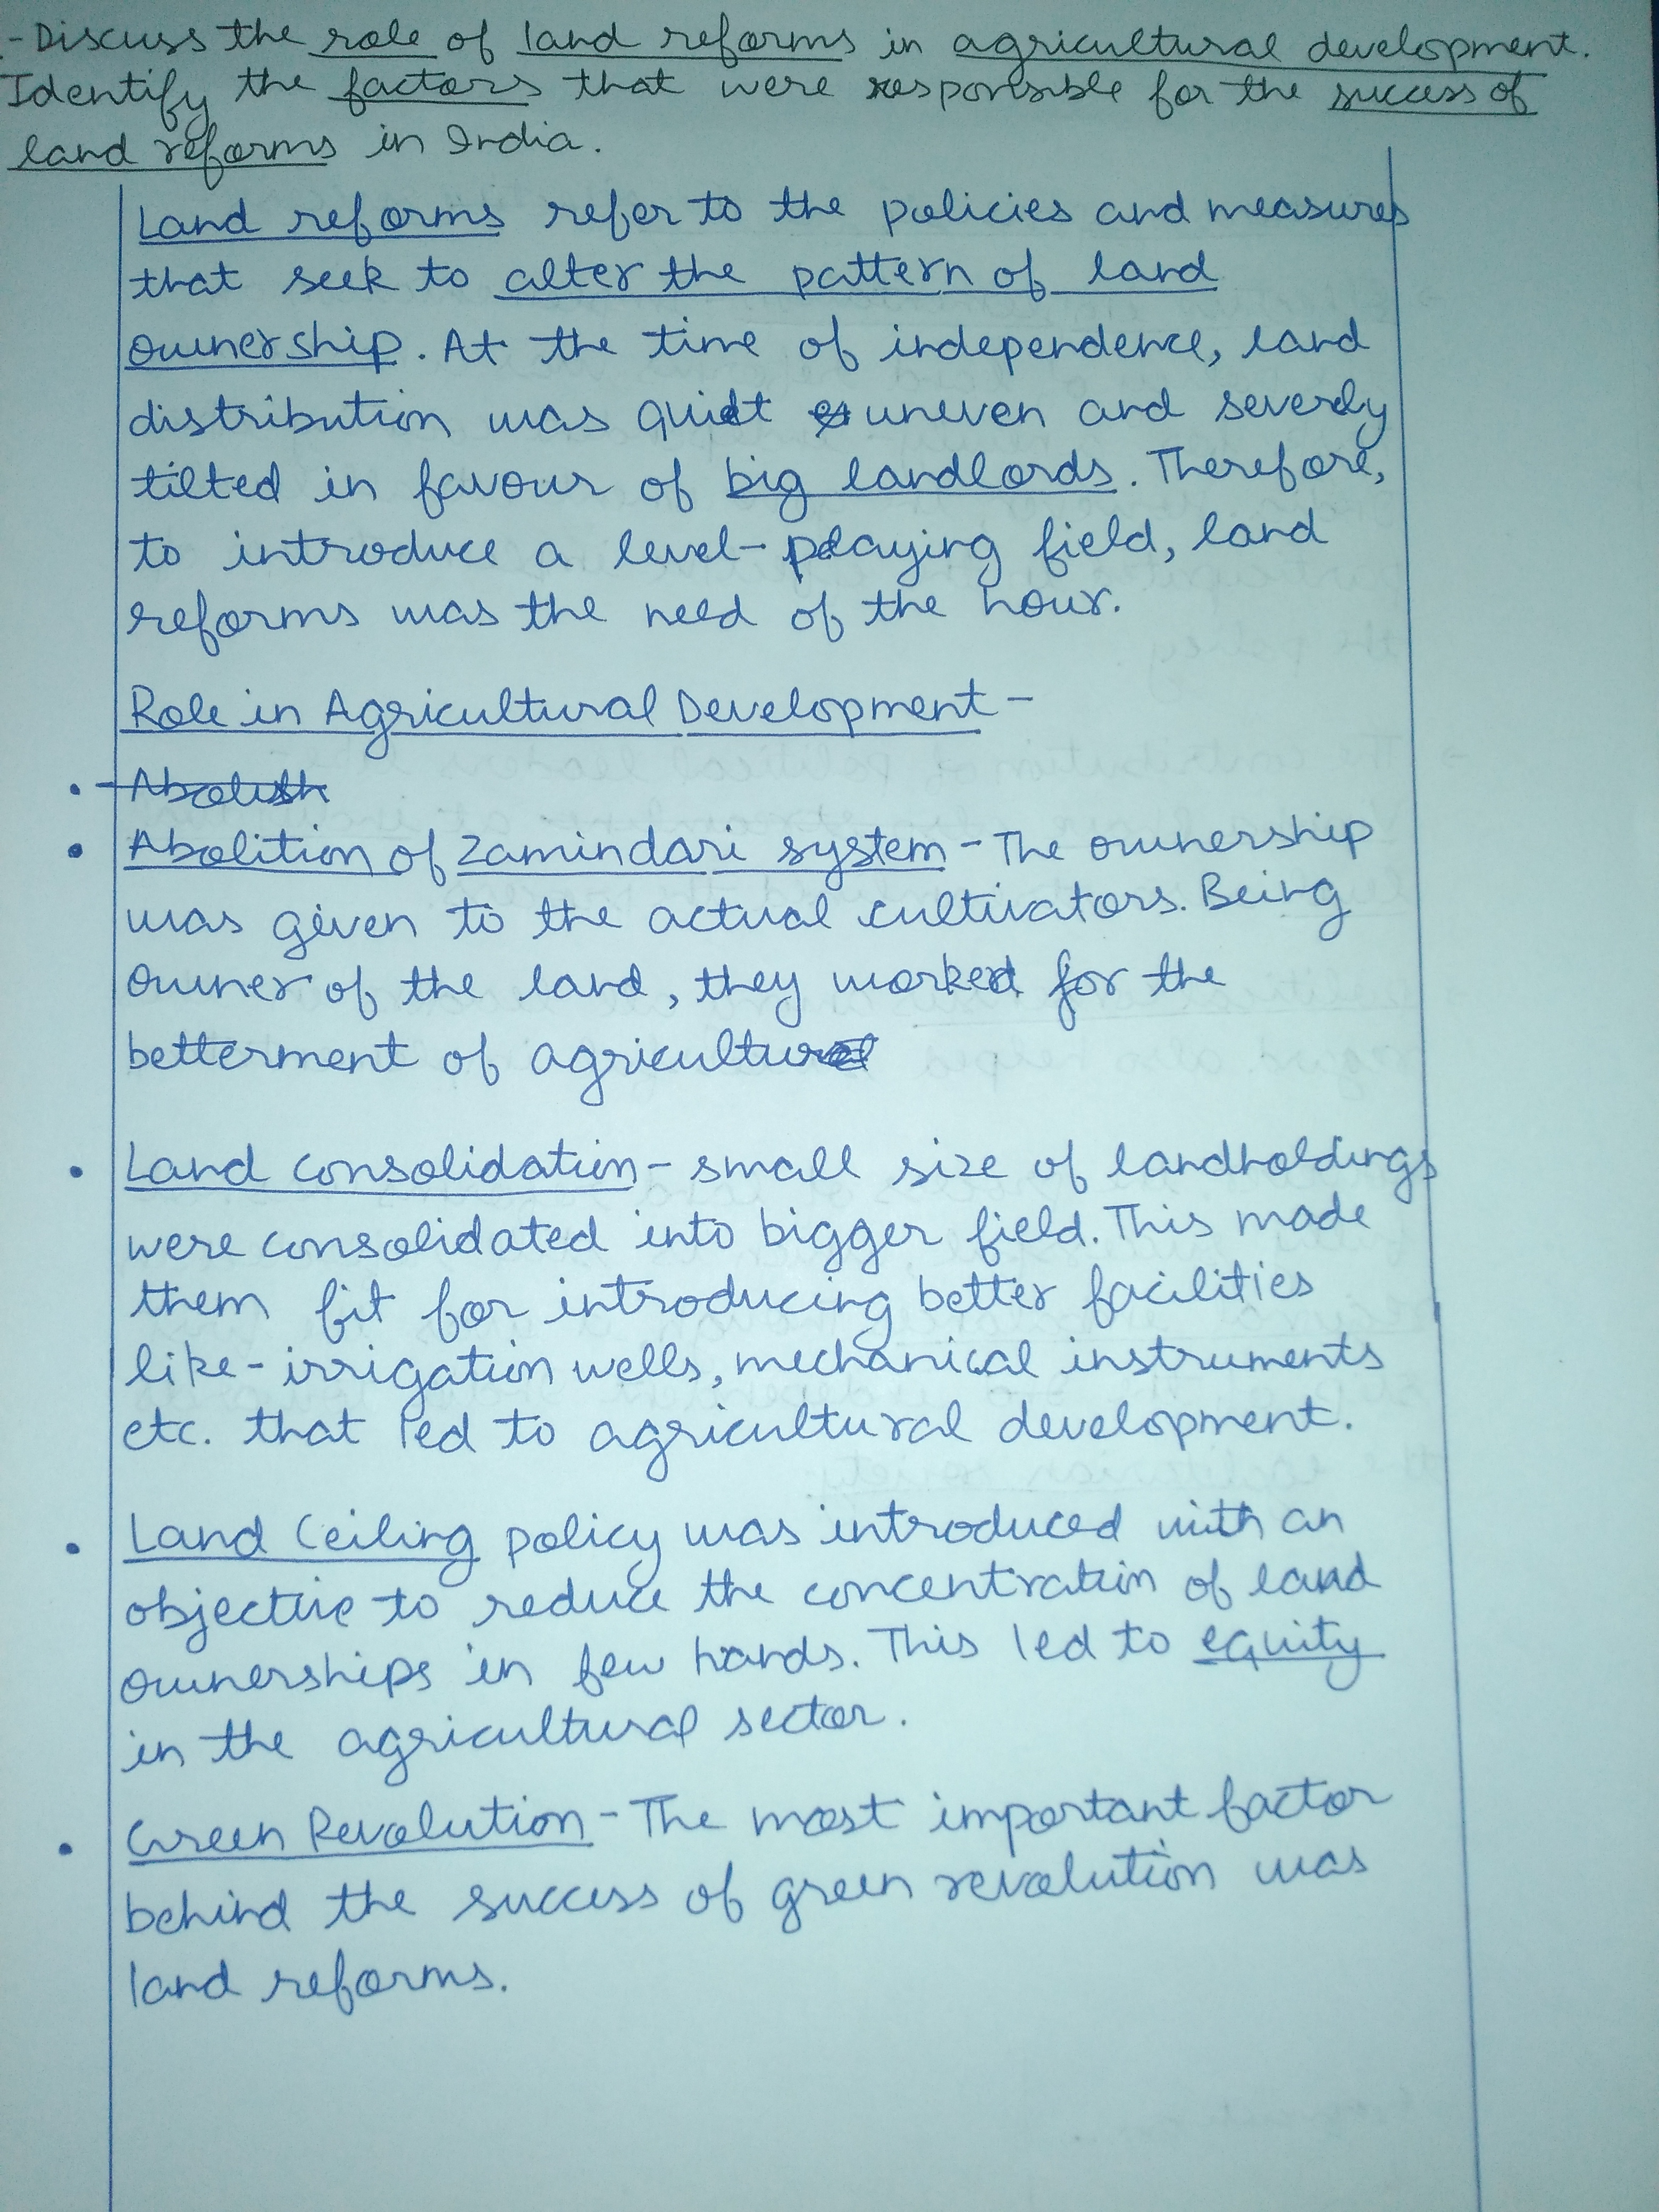 - Discuss the role of land reforms in agricultural development.
Identify the factors that were responsible for the success of
land reforms in India.
Land reforms refer to the policies and measures
that seek to alter the pattern of land
ownership. At the time of independence, land
distribution was quiet uneven and severely
tilted in favour of big landlords. Therefore,
to introduce a level-playing field, land
reforms was the need of the hour.
Role in Agricultural Development -
• Abolish
• Abolition of Zamindari system - The ownership
was given to the actual cultivators. Being
owner of the land, they worked for the
betterment of agriculture
• Land consolidation - small size of landholdings
were consolidated into bigger field. This made
them fit for introducing better facilities
like - irrigation wells, mechanical instruments
etc. that led to agricultural development.
• Land Ceiling policy was introduced with an
objective to reduce the concentration of land
ownerships in few hands. This led to equity
in the agricultural sector.
• Green Revolution - The most important factor
behind the success of green revolution was
land reforms.